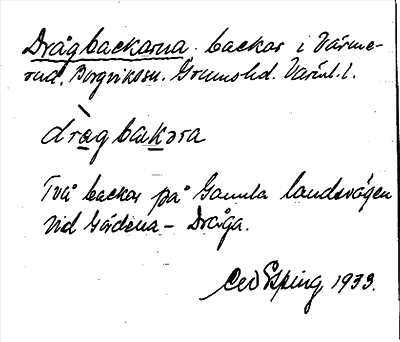 Drågbackarna. backar i Värme-
rud. Borgviks sn. Grums hd. Värml. l.
dràgbakəra
Två backar på Gamla landsvägen
vid Gärdena - Dråga.
Esping 1933.